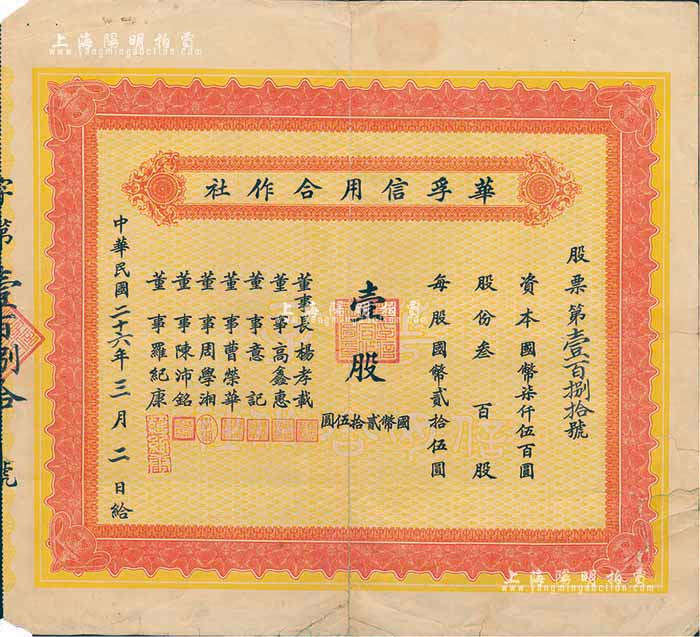 上海陽明拍賣
www.yangmingauction.com
華孚信用合作社
股票第壹百捌拾號
資本國幣柒仟伍百圓
股份叁百股
每股國幣貳拾伍圓
壹股
國幣貳拾伍圓
董事長楊孝載
董事高鑫惠
董事意記
董事曹榮華
董事周學湘
董事陳沛銘
董事羅紀康
中華民國二十六年三月二日給
字第壹百捌拾號
上海陽明拍賣
上海陽明拍賣
www.yangmingauction.com